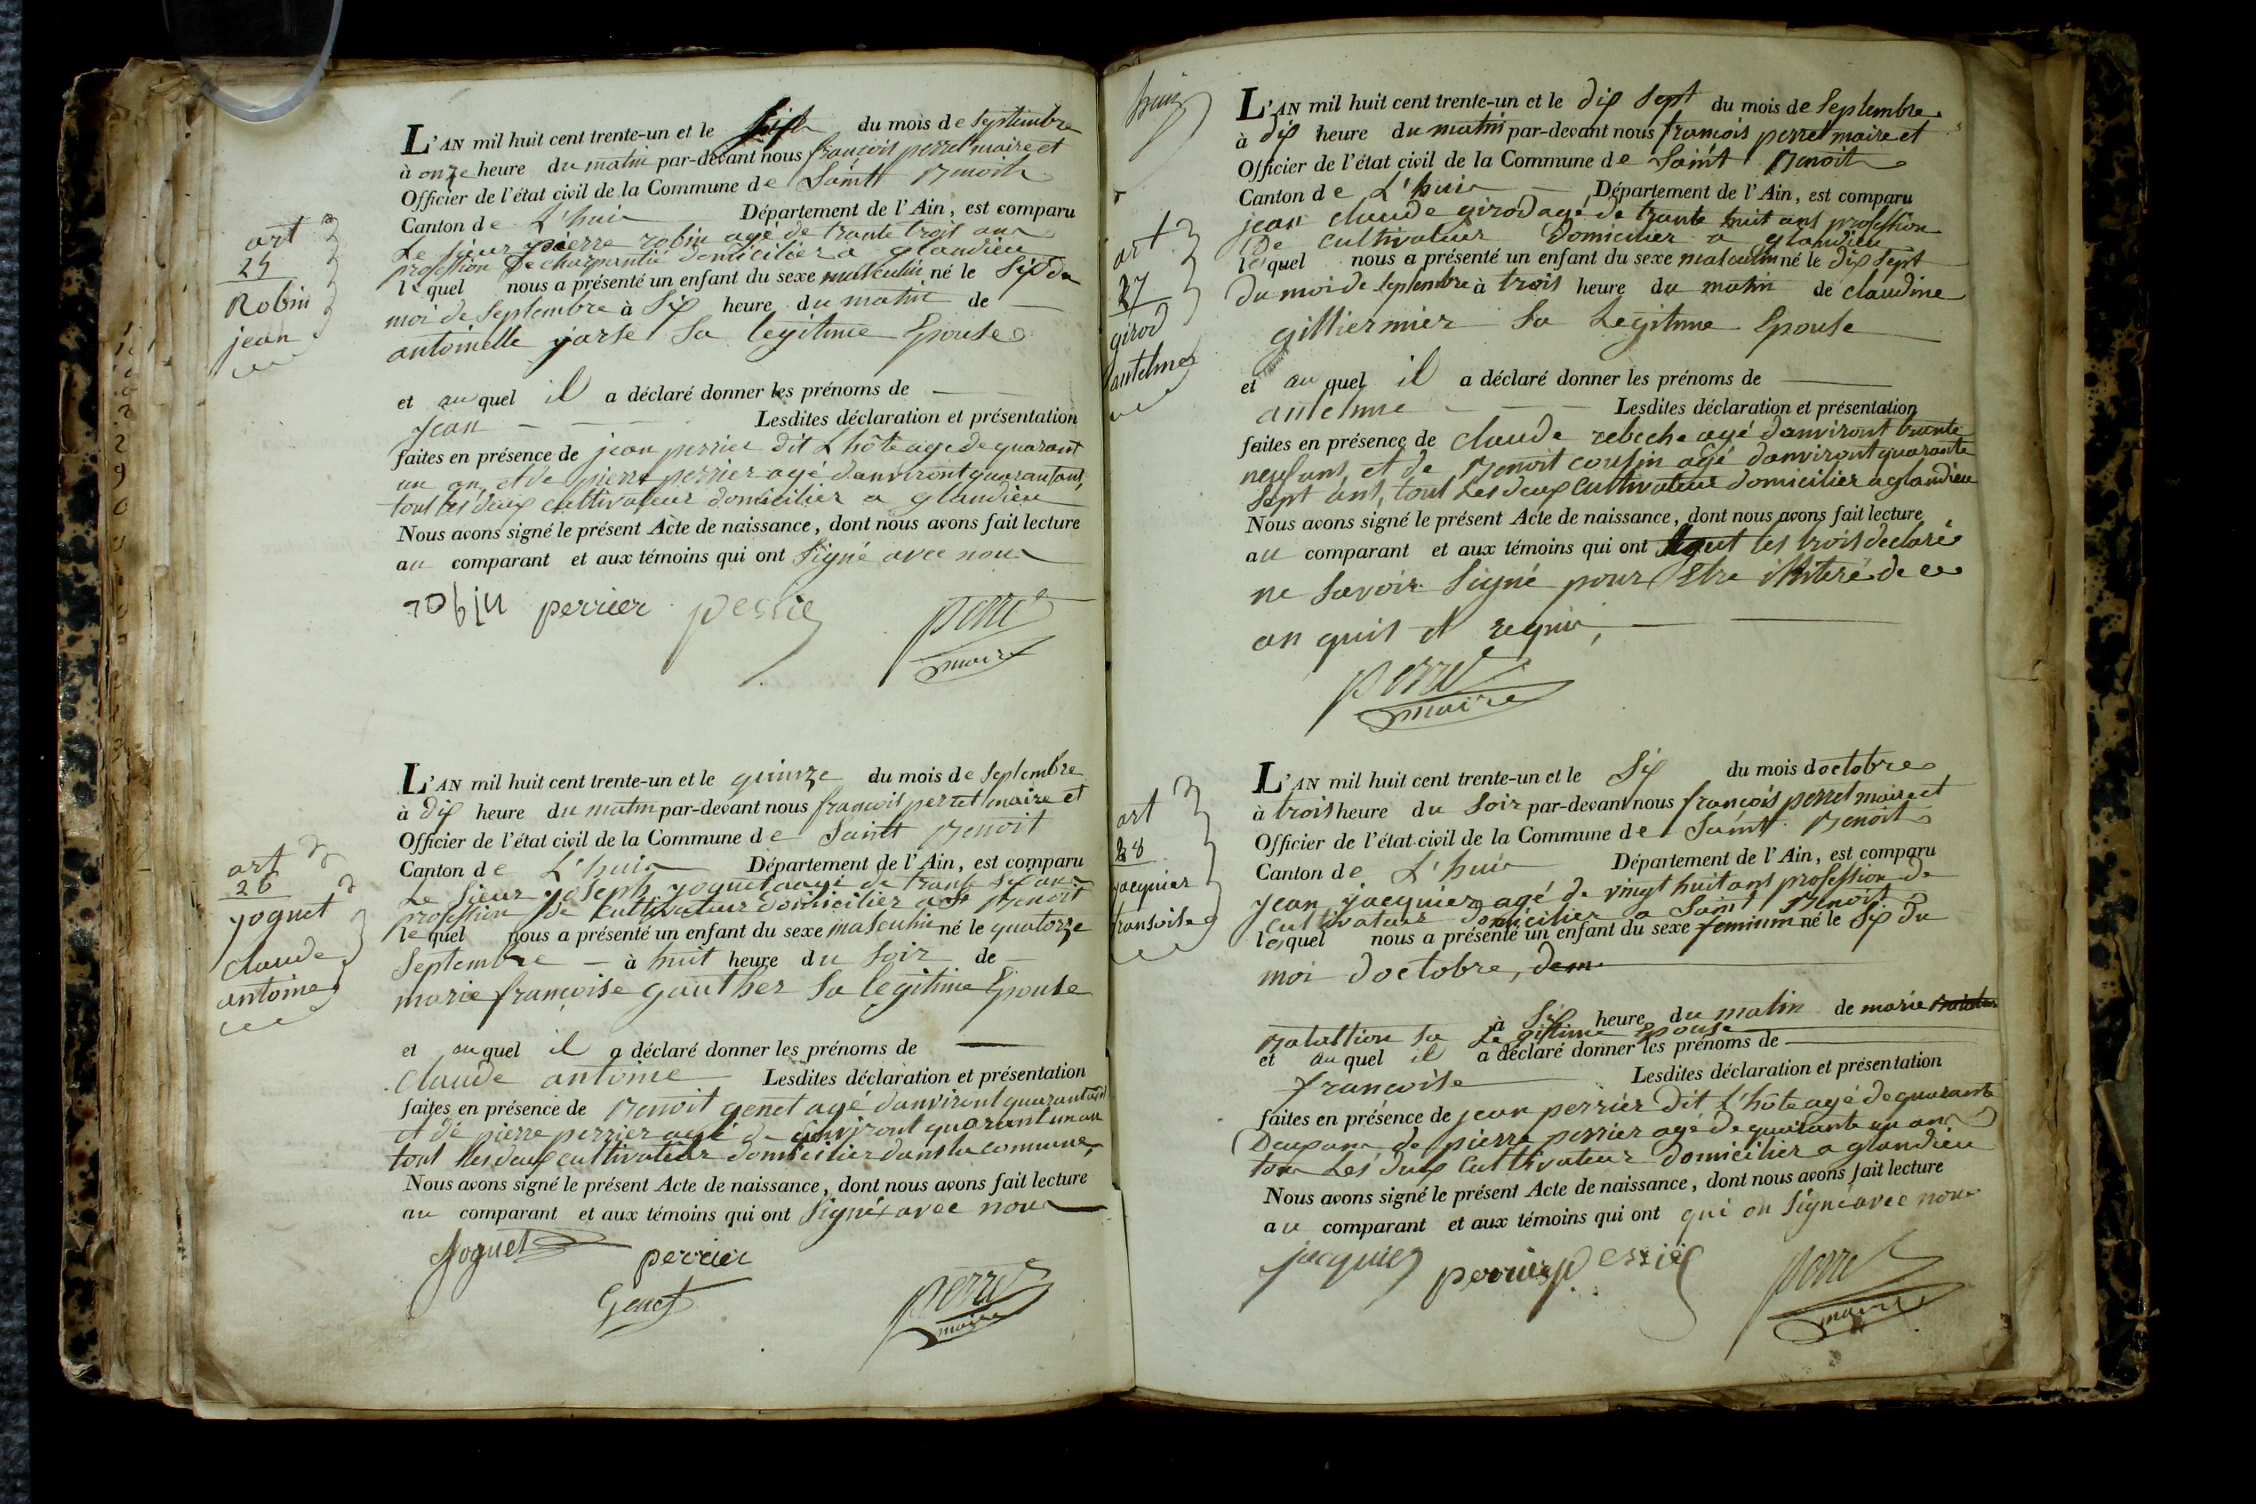 L'AN mil huit cent trente-un et le six du mois de septembre
à onze heure du matin par-devant nous françois perret maire et
Officier de l'état civil de la Commune de Saintt Benoit
Canton de L'huis Département de l'Ain, est comparu
Le sieur pierre robin agé de trante trois ans
profession de charpantié domicilier a glandieu
lequel nous a présenté un enfant du sexe masculin né le six du
moi de septembre à six heure du matin de
antoinette jarse sa legitime Epouse
et auquel il a déclaré donner les prénoms de
jean Lesdites déclaration et présentation
faites en présence de jean perrier dit L hôte age de quarant
un an et de pierre perrier agé danviront quarantant
tout les deux cultivateur domicilier a glandieu
Nous avons signé le présent Acte de naissance, dont nous avons fait lecture
au comparant et aux témoins qui ont signé avec nous
robin perrier perrier perret
maire
art
25
Robin
jean
L'AN mil huit cent trente-un et le quinze du mois de septembre
à dix heure du matin par-devant nous françois perret maire et
Officier de l'état civil de la Commune de Saintt Benoit
Canton de L'huis Département de l'Ain, est comparu
Le sieur joseph joguet agé de trante six ans
profession de cultivateur domicilier a st Benoit
lequel nous a présenté un enfant du sexe masculin né le quatorze
septembre à huit heure du soir de
marie françoise gauther sa legitime Epouse
et auquel il a déclaré donner les prénoms de
claude antoine Lesdites déclaration et présentation
faites en présence de Benoit genet agé danviront quarant
et de pierre perrier agé de Environt quarant un an
tout les deux cultivateur domicilier dans la commune
Nous avons signé le présent Acte de naissance, dont nous avons fait lecture
au comparant et aux témoins qui ont signé avec nous
Joguet perrier
Genet perret
maire
art
26
joguet
claude
antoine
L'AN mil huit cent trente-un et le dix sept du mois de septembre
à dix heure du matin par-devant nous francois perret maire et
Officier de l'état civil de la Commune de Saint Benoit
Canton de L'huis Département de l'Ain, est comparu
jean claude girod agé de trante huit ans profession
De cultivateur domicilier a glandieu
lequel nous a présenté un enfant du sexe masculin né le dix sept
du moi de septembre à trois heure du matin de claudine
gilliermier sa Legitime Epouse
et auquel il a déclaré donner les prénoms de
antelme Lesdites déclaration et présentation
faites en présence de claude rebeche agé danviront trante
neuf ans et de Benoit cousin agé danviront quarante
sept ans, tout les deux cultivateur domicilier a glandieu
Nous avons signé le présent Acte de naissance, dont nous avons fait lecture
au comparant et aux témoins qui ont les trois declaré
ne savoir signé pour Etre de ce
an quis et requis,
perret
maire
huis
art
27
girod
antelme
L'AN mil huit cent trente-un et le six du mois doctobre
à trois heure du soir par-devant nous françois perret maire et
Officier de l'état civil de la Commune de Saintt Benoit
Canton de L'huis Département de l'Ain, est comparu
jean jacquier agé de vingt huit ans profession de
cultivateur domicilier a Saint Benoit
lequel nous a présenté un enfant du sexe feminim né le six du
moi doctobre,
à six heure du matin de marie
sa Legitime Epouse
et auquel il a déclaré donner les prénoms de
francoise Lesdites déclaration et présentation
faites en présence de jean perrier dit L'hôte agé de quarante
Deux an de pierre perrier agé de quarante un an
tou Les deux cultivateur domicilier a glandieu
Nous avons signé le présent Acte de naissance, dont nous avons fait lecture
au comparant et aux témoins qui ont qui on signé avec nous
jacquier perrier perrier perret
maire
art
28
jacquier
fransoise